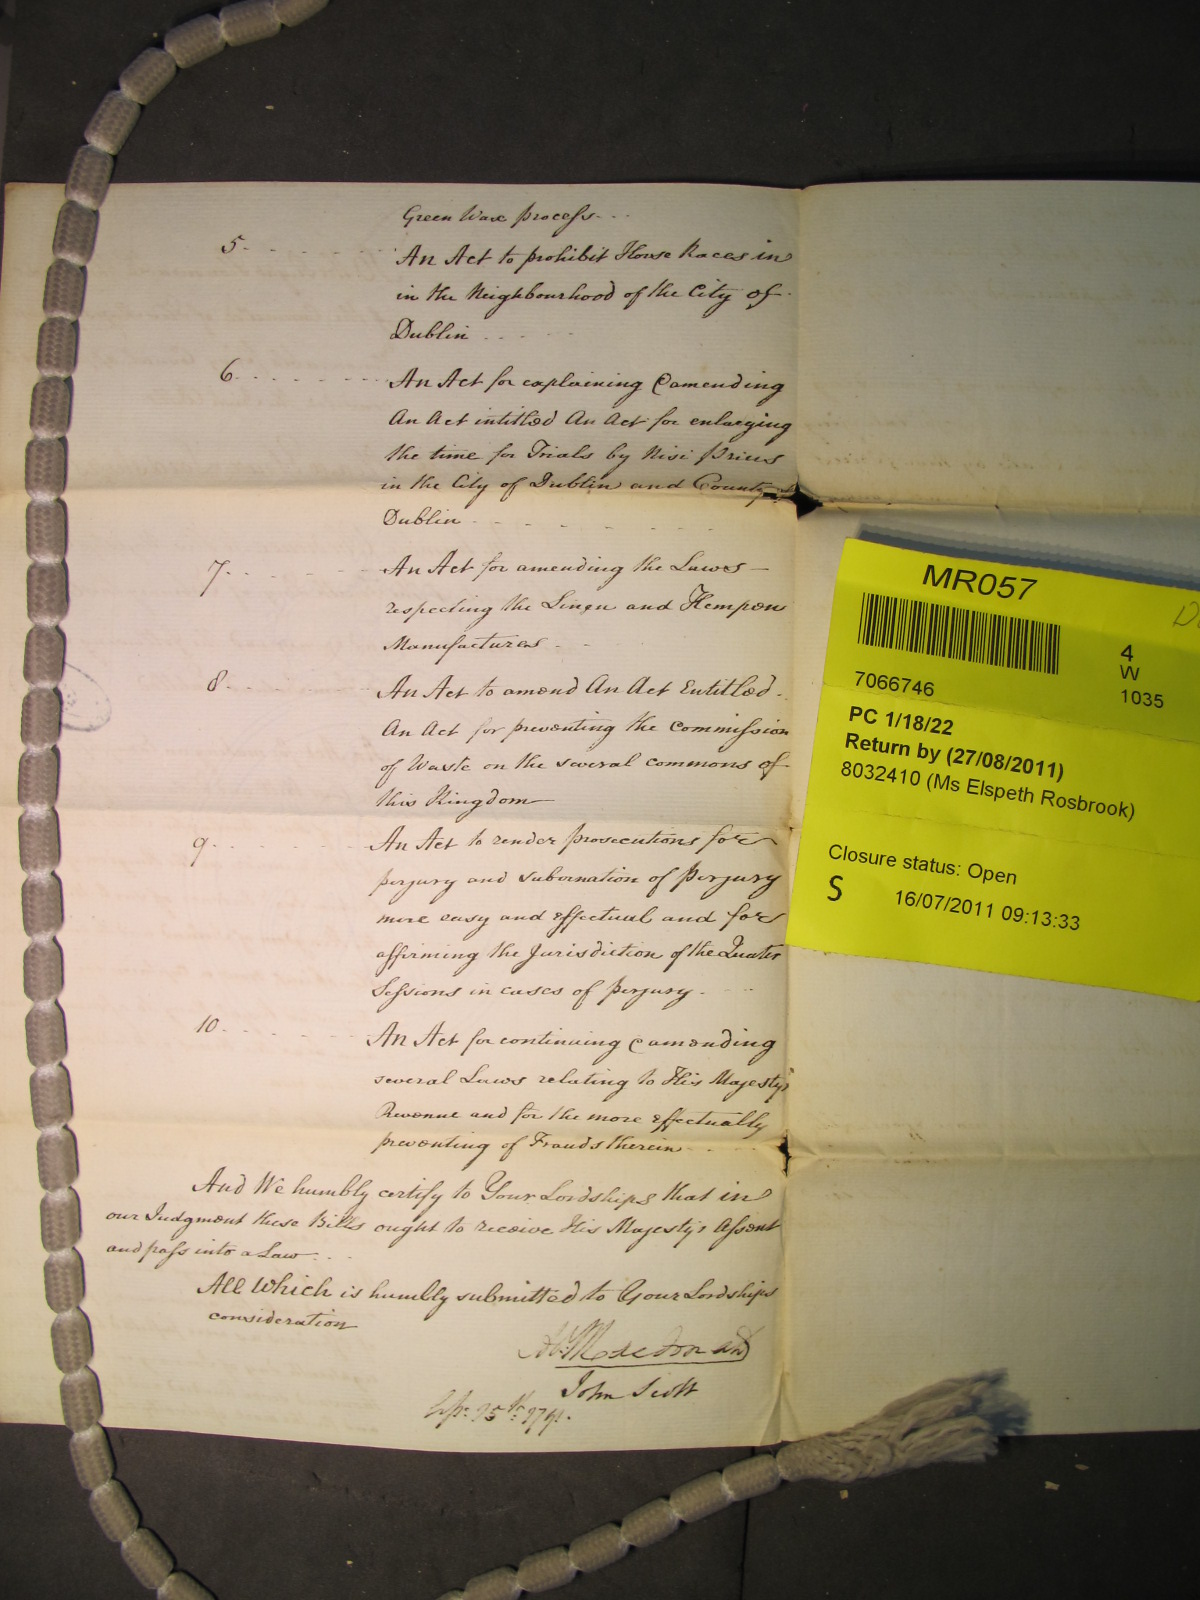 Green Wax process
5 An Act to prohibit Horse Races in
in the Neighbourhood of the City of
Dublin
6 An Act for explaining & amending
An Act intitled An Act for enlarging
the time for Trials by Nisi Prius
in the City of Dublin and County
Dublin
7 An Act for amending the Laws
respecting the Linen and Hempen
Manufactures
8 An Act to amend An Act Entitled
An Act for preventing the Commission
of Waste on the several commons of
this Kingdom
9 An Act to render prosecutions for
perjury and subornation of Perjury
more easy and effectual and for
affirming the Jurisdiction of the Quater
Sessions in cases of perjury
10 An Act for continuing & amending
several Laws relating to His Majestys
Revenue and for the more effectually
preventing of Frauds therein
And We humbly certify to Your Lordships that in
our Judgment these Bills ought to receive His Majestys Assent
and pass into a Law
All Which is humbly submitted to Your Lordships
consideration
Macdonald
John Scott
MR057
7066746
4
W
1035
PC 1/18/22
Return by (27/08/2011)
8032410 (Ms Elspeth Rosbrook)
Closure status: Open
S 16/07/2011 09:13:33